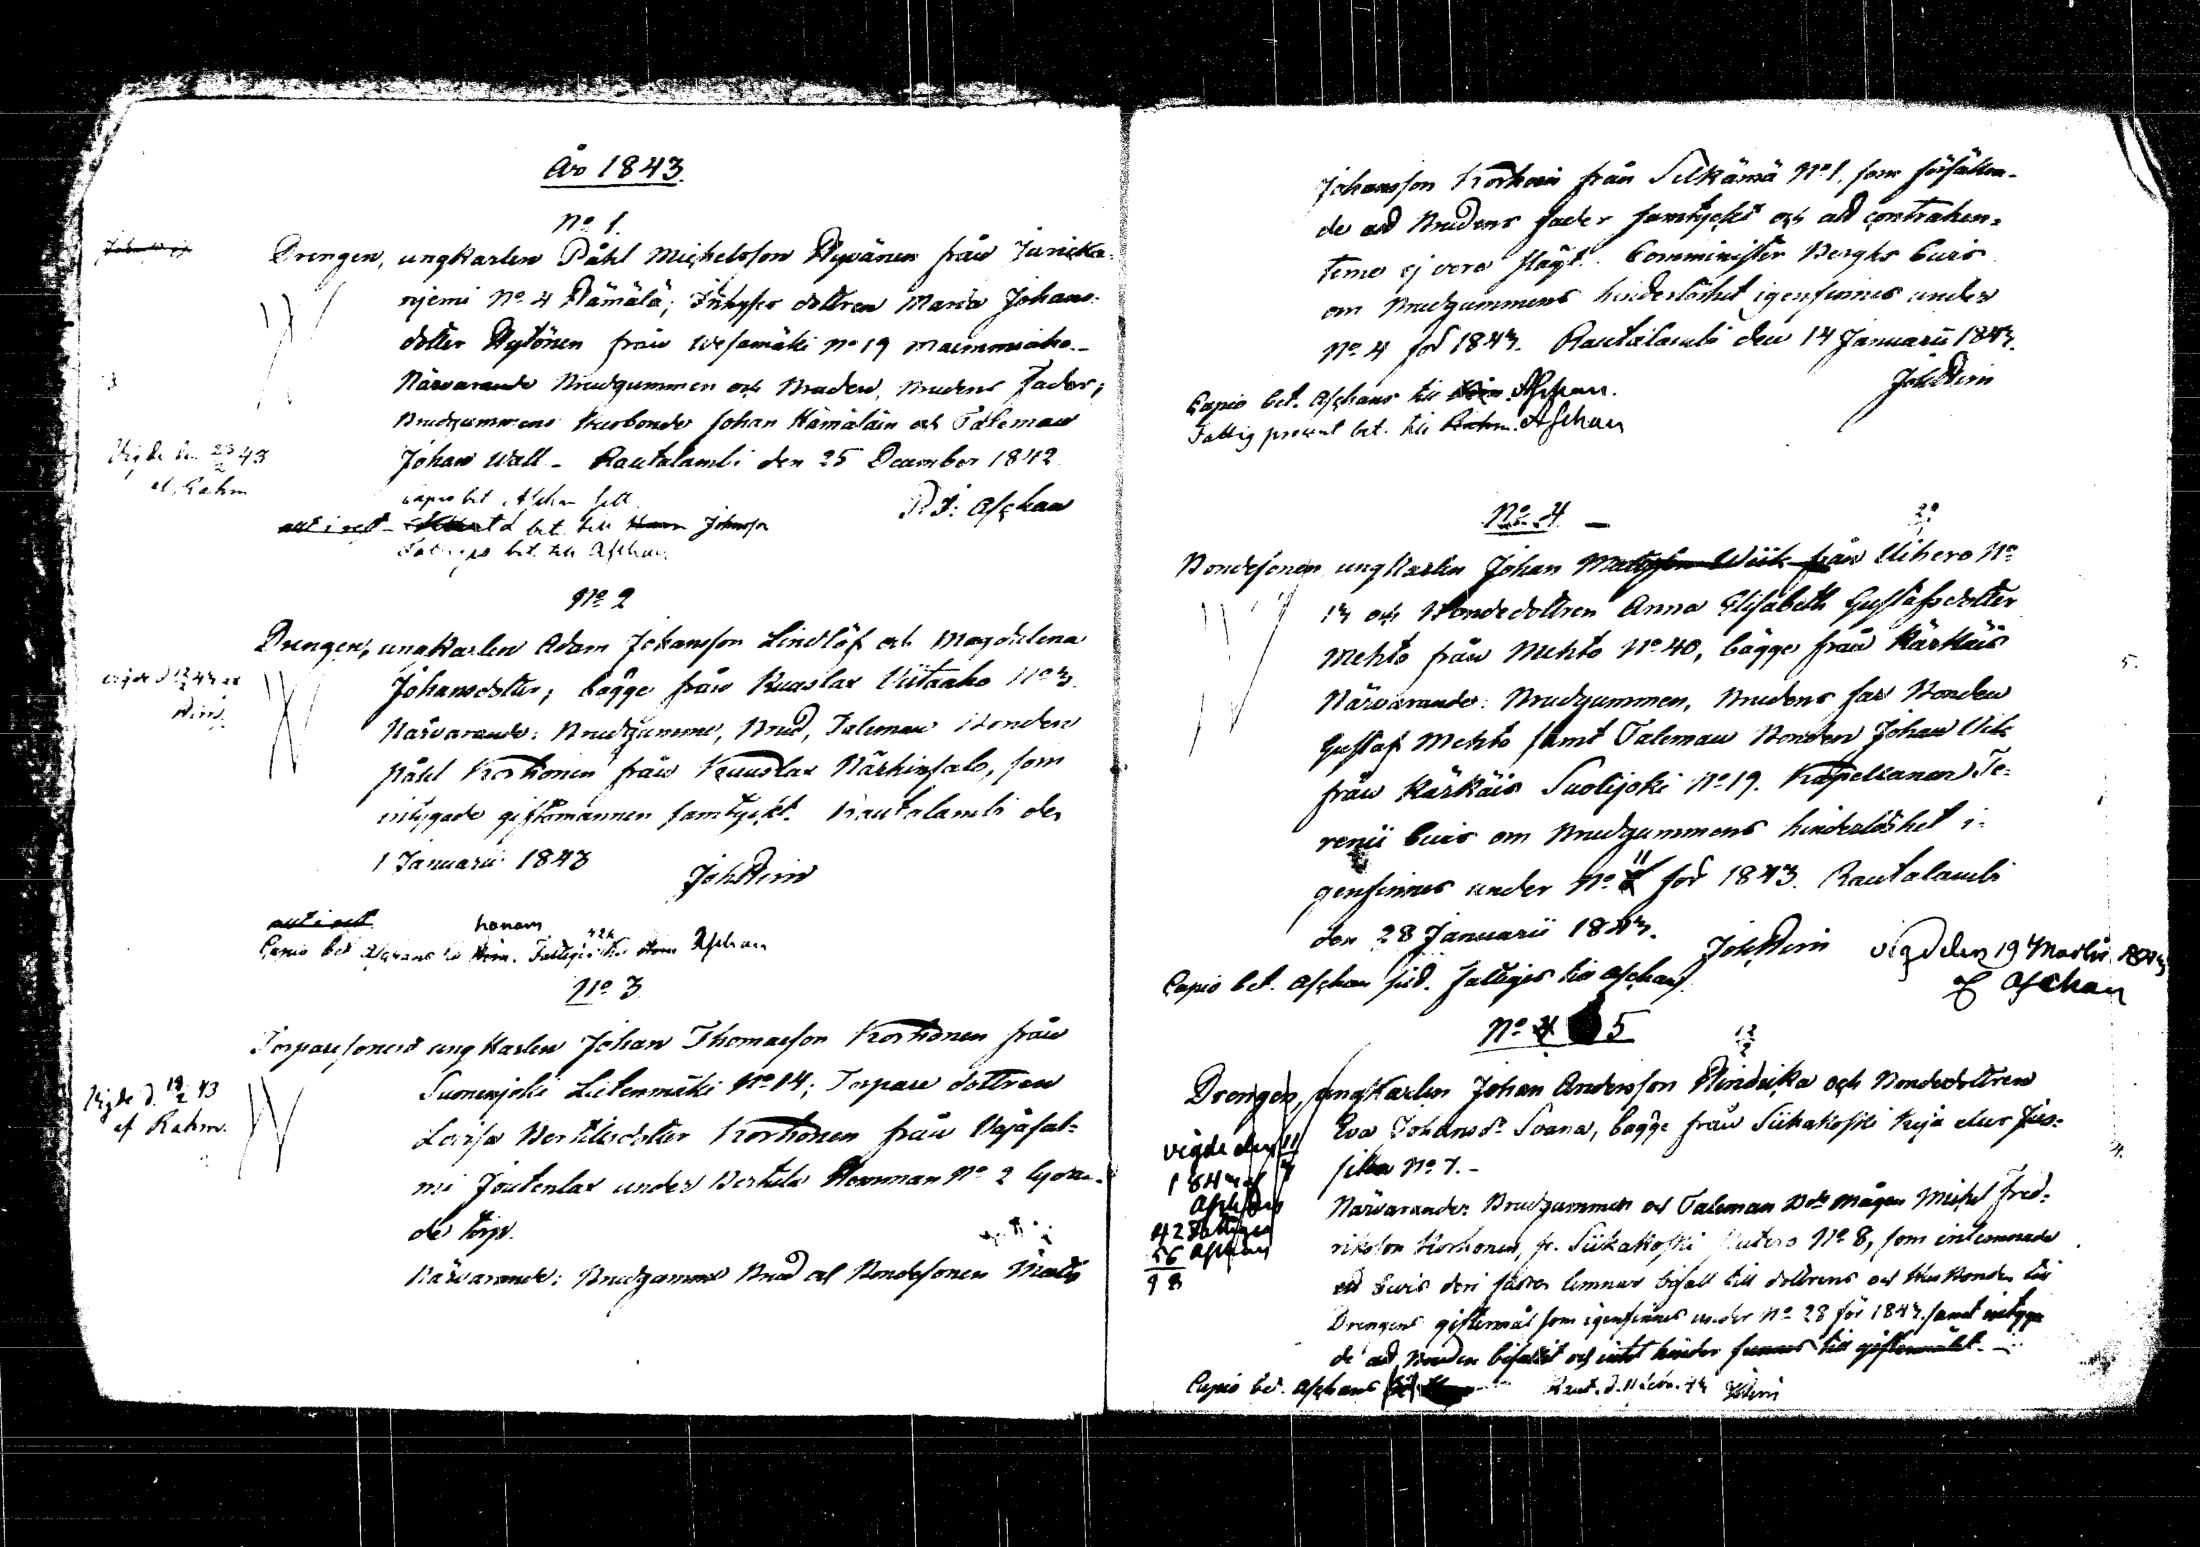 År 1843.
No 1.
Drengen, ungkarlen Påhl Michelsson Hyvänen från Juricka-
njemi No 4 Hämälä; Inhyses dottren Maria Johans-
dotter Hytönen från Wesamäki No 19
Närvarande Brudgummen och Bruden, Brudens fader,
Brudgummens Husbonde Johan Hämäläin och Taleman
Johan Wall - Rautalambi den 25 December 1842
P. J. Aschan
Vigde den 23/2 43
af Rahm
bet. till Johnsson
bet. till Aschan
No 2
Drengen, ungkarlen Adam Johansson Lindlöf och Magdalena
Johansdotter; bägge från Kuuslax Viitaaho No 3.
Närvarande: Brudgumme, Brud, Taleman Bonden
Påhl Korhonen från Kuuslax Närhinsalo, som
intygade giftomannen samtyckt. Rautalambi den
1 Januarii 1843
Joh Hein
honom
Capio bet. Aschans till Aschan
No 3
Torparesonen ungkarlen Johan Thomasson Korhonen från
Suonenjoki Lietenmäki No 14; Torpare dottren
Lovisa Bertilsdotter Korhonen från Vajasal-
mi Joutenlax under Bertils Hemman No 2 lydan-
de torp.
Närvarande: Brudgumme Brud och Bondesonen Mats
Vigde d. 19/2 43
af Rahm.
Johansson Korhonen från Selkämä No 1. som försäkra-
de att Brudens fader samtyckt och att contrahen-
terne ej voro slägt. Comminister Berghs bevis
om Brudgummens hinderlöshet igenfinnes under
No 4 för 1843. Rautalambi den 14 Januarii 1843.
Joh Hein
Capio bet. Aschans till Aschan.
Fattig procent bet. till Rahm. Aschan
No 4
Bondesonen ungkarlen Johan Matsson Wiik från Vihero No
13 och Bondedottren Anna Elisabeth Gustafsdotter
Mehto från Mehto No 40, bägge från Kärkäis
Närvarande: Brudgummen, Brudens far Bonden
Gustaf Mehto samt Taleman Bonden Johan Wiik
från Kärkäis Suolijoki No 19. Kapellanen Te-
renii bevis om Brudgummens hinderlöshet i-
genfinnes under No 11 för 1843. Rautalambi
den 28 Januarii 1843.
Joh Hein
vigd den 19 Martii 1843
af Aschan
Capio bet. Aschan sjelf. fattiges till Aschan.
No 4 5
12/2
Drengen, ungkarlen Johan Andersson Hindrika och Bondedottren
Eva Johansdr Soana, bägge från Siikakoski Kuja eller Jus-
sila No 7. -
Närvarande: Brudgummen och Taleman Bde mågen Michel Fred-
rikson Korhonen, fr. Siikakoski No 8, som inlemnade
ett bevis deri fadren lemnar bifall till dottrens och Husbonden till
Drengens giftermål som igenfinnes under No 28 för 1843 samt intyga-
de att Bruden bifallit och intet hinder funnes till giftermålet. -
Capio bet. Aschans
Raut. d. 11 Febr. 43 JHein
vigde den 11
Aschan
42 Fattigas
56 Aschan
98